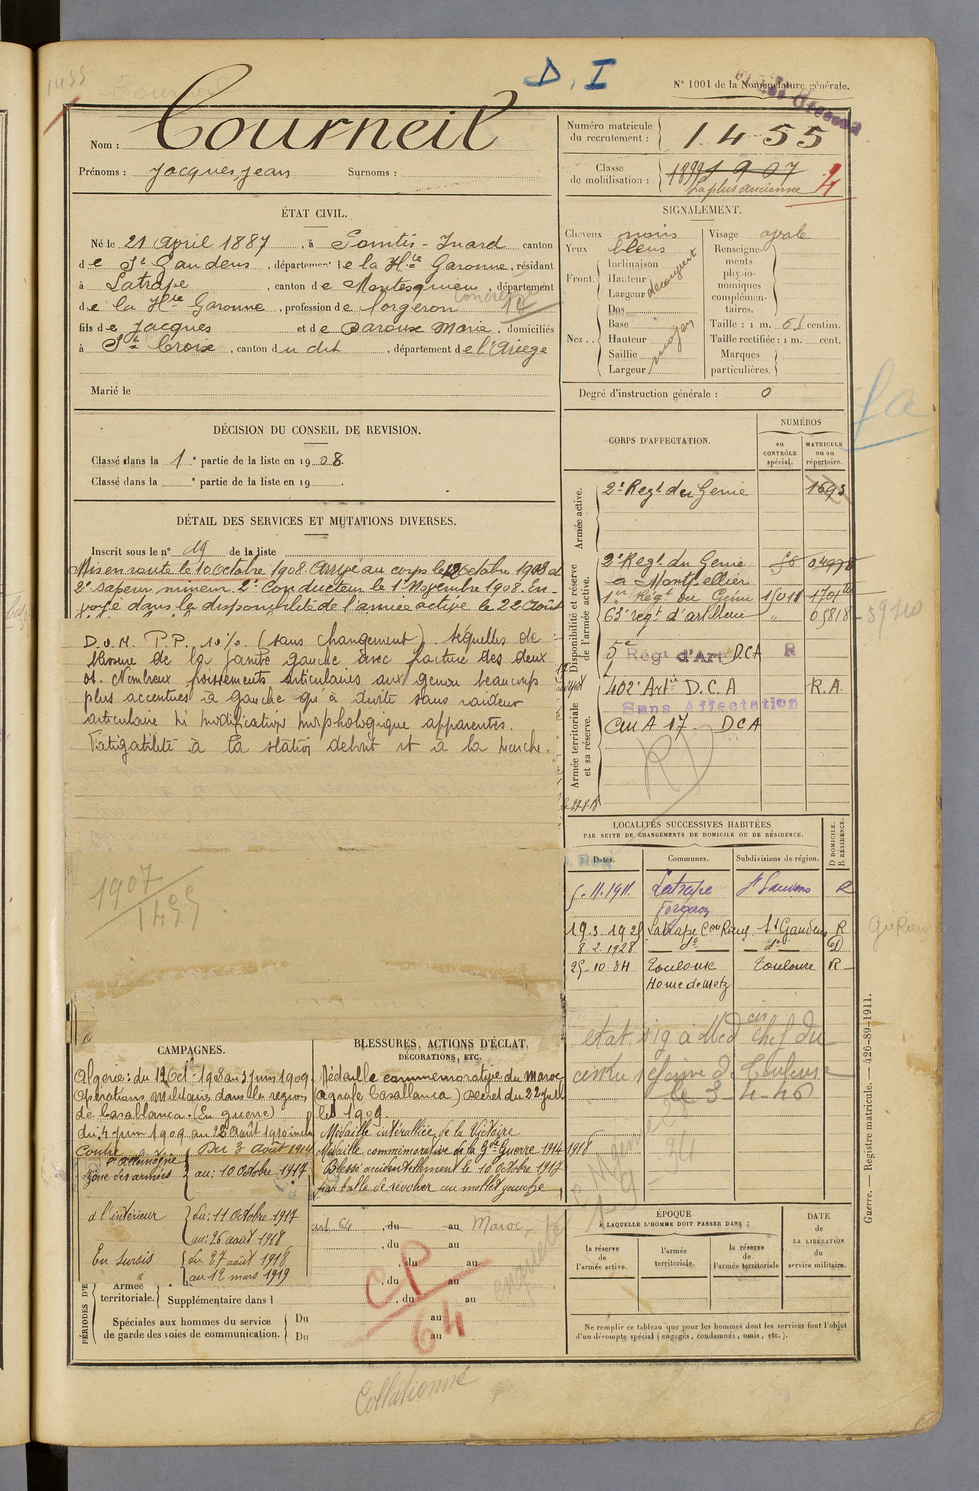 1455
D, I
N° 1001 de la Nomenclature générale.
Nom : Courneil
Prénoms : Jacques, Jean Surnoms :
Numéro matricule du recrutement : 1455
Classe de mobilisation : 1907
La plus ancienne 4
ÉTAT CIVIL.
Né le 21 Avril 1887, à Pointis-Inard canton
de St Gaudens, département de la Hte Garonne, résidant
à Latrape, canton de Montesquieu, département
de la Hte Garonne, profession de forgeron
fils de Jacques et de Baroux Marie, domiciliés
à Ste Croix, canton du dit, département de l'Ariège
Marié le
SIGNALEMENT.
Cheveux noirs
Yeux bleus
Front Inclinaison
Hauteur
Largeur découvert
Nez Dos
Base
Hauteur moyen
Saillie
Largeur
Visage ovale
Renseignements physionomiques complémentaires.
Taille : 1 m. 61 centim.
Taille rectifiée : 1 m. cent.
Marques particulières.
Degré d'instruction générale : 0
DÉCISION DU CONSEIL DE REVISION.
Classé dans la 1e partie de la liste en 1908.
Classé dans la e partie de la liste en 19 .
DÉTAIL DES SERVICES ET MUTATIONS DIVERSES.
Inscrit sous le n° 19 de la liste
Mis en route le 10 octobre 1908. Arrivé au corps le 12 octobre 1908 et
2e sapeur mineur. 2e Conducteur le 1er Novembre 1908. En-
voyé dans la disponibilité de l'armée active le 22 août
D.O.M. P.P. 10% (sans changement). Séquelles de
blessure de la jambe gauche avec fracture des deux
os. Nombreux froissements articulaires aux genoux beaucoup
plus accentués à gauche qu'à droite sans raideur
articulaire ni modification morphologique apparentes.
Fatigabilité à la station debout et à la marche.
1907
1455
CORPS D'AFFECTATION.
NUMÉROS
au CONTRÔLE spécial.
MATRICULE ou au répertoire.
Armée active.
2e Regt du Génie 1693
Disponibilité et réserve de l'armée active.
2e Regt du Génie
à Montpellier
1er Régt du Génie
63e regt d'artillerie 05818
5e Regt d'Art DCA R
Armée territoriale et sa réserve.
402e Artie D.C.A R.A.
Sans Affectation
CM A 17 DCA
LOCALITÉS SUCCESSIVES HABITÉES
PAR SUITE DE CHANGEMENTS DE DOMICILE OU DE RÉSIDENCE.
Dates. Communes. Subdivisions de région. D DOMICILE. R RÉSIDENCE.
5.11.1911 Latrape St Gaudens R
Forgeron
19.3.1925 Latrape Con Rieux St Gaudens R
8.2.1928 do do D
25-10-34 Toulouse Toulouse R
état sig à Med cis chef du
centre réforme de Toulouse
le 3-4-46
CAMPAGNES.
Algérie : du 12 Oct 1908 au 3 juin 1909.
Opérations militaires dans la région
de Casablanca. (En guerre)
du 4 juin 1909 au 22 Août 1910 inclus
Contre l'Allemagne Du 3 août 1914
Zone des armées au : 10 Octobre 1917
à l'intérieur du : 11 Octobre 1917
au : 26 août 1918
En sursis du 27 août 1918
au 12 mars 1919
BLESSURES, ACTIONS D'ÉCLAT,
DÉCORATIONS, ETC.
Médaille commémorative du Maroc
(agrafe Casablanca) décret du 22 juil-
let 1909.
Médaille interalliée de la Victoire
Médaille commémorative de la Gde Guerre 1914 1918
Blessé accidentellement le 10 Octobre 1917
par balle de revolver au mollet gauche
, du au Maroc
, du au
, du au
, du au
PÉRIODES D'E
Armée territoriale. Supplémentaire dans l , du au
Spéciales aux hommes du service
de garde des voies de communication. Du au
Du au
CP
64
ÉPOQUE
À LAQUELLE L'HOMME DOIT PASSER DANS :
la réserve de l'armée active.
l'armée territoriale.
la réserve de l'armée territoriale
DATE DE LA LIBÉRATION du service militaire.
Ne remplir ce tableau que pour les hommes dont les services font l'objet
d'un décompte spécial (engagés, condamnés, omis, etc.).
Guerre. — Registre matricule. — 426-89-1911.
Collationné